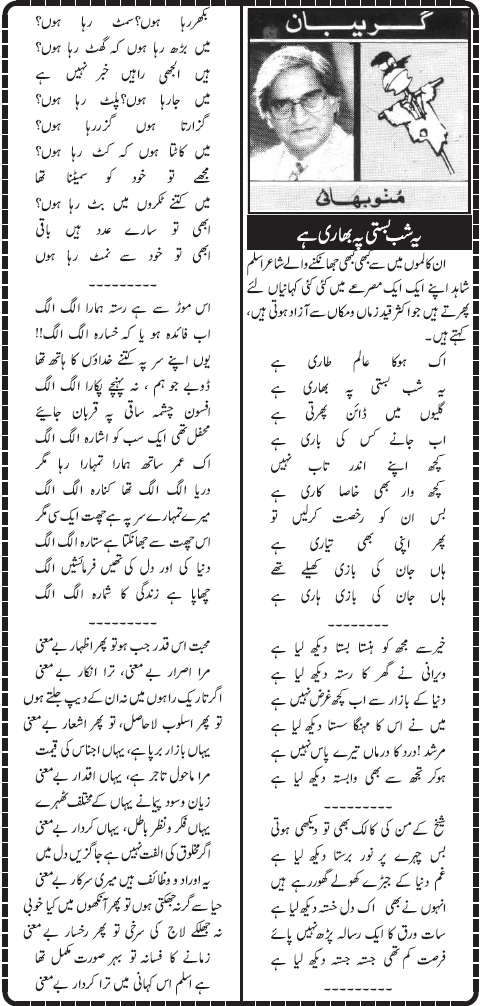 گریبان
منو بھائی
یہ شب بستی پہ بھاری ہے
ان کالموں میں سے کبھی کبھی جھانکنے والے شاعر اسلم
شاہد اپنے ایک ایک مصرعے میں کئی کئی کہانیاں لئے
پھرتے ہیں جو اکثر قید زماں ومکاں سے آزاد ہوتی ہیں،
کہتے ہیں۔
اک ہوکا عالم طاری ہے
یہ شب بستی پہ بھاری ہے
گلیوں میں ڈائن پھرتی ہے
اب جانے کس کی باری ہے
کچھ اپنے اندر تاب نہیں
کچھ وار بھی خاصا کاری ہے
بس ان کو رخصت کرلیں تو
پھر اپنی بھی تیاری ہے
ہاں جان کی بازی کھیلے تھے
ہاں جان کی بازی ہاری ہے
---------
خیر سے مجھ کو ہنستا بستا دیکھ لیا ہے
ویرانی نے گھر کا رستہ دیکھ لیا ہے
دنیا کے بازار سے اب کچھ غرض نہیں ہے
میں نے اس کا مہنگا سستا دیکھ لیا ہے
مرشد! درد کا درماں تیرے پاس نہیں ہے
ہوکر تجھ سے بھی وابستہ دیکھ لیا ہے
---------
شیخ کے من کی کالک بھی تو دیکھی ہوتی
بس چہرے پر نور برستا دیکھ لیا ہے
غم دنیا کے جبڑے کھولے گھور رہے ہیں
انہوں نے بھی اک دل خستہ دیکھ لیا ہے
سات ورق کا ایک رسالہ پڑھ نہیں پائے
فرصت کم تھی جستہ جستہ دیکھ لیا ہے
---------
بکھر رہا ہوں؟ سمٹ رہا ہوں؟
میں بڑھ رہا ہوں کہ گھٹ رہا ہوں؟
ہیں الجھی راہیں خبر نہیں ہے
میں جارہا ہوں؟ پلٹ رہا ہوں؟
گزارتا ہوں گزر رہا ہوں؟
میں کاٹتا ہوں کہ کٹ رہا ہوں؟
مجھے تو خود کو سمیٹنا تھا
میں کتنے ٹکروں میں بٹ رہا ہوں؟
ابھی تو سارے عدد ہیں باقی
ابھی تو خود سے نمٹ رہا ہوں
---------
اس موڑ سے ہے رستہ ہمارا الگ الگ
اب فائدہ ہو یا کہ خسارہ الگ الگ!!
یوں اپنے سر پہ کتنے خداؤں کا ہاتھ تھا
ڈوبے جو ہم ، نہ پہنچے پکارا الگ الگ
افسون چشمہ ساقی پہ قربان جائیے
محفل تھی ایک سب کو اشارہ الگ الگ
اک عمر ساتھ ہمارا تمہارا رہا مگر
دریا الگ الگ تھا کنارہ الگ الگ
میرے تمہارے سر پہ ہے چھت ایک سی مگر
اس چھت سے جھانکتا ہے ستارہ الگ الگ
دنیا کی اور دل کی تھیں فرمائشیں الگ
چھاپا ہے زندگی کا شمارہ الگ الگ
---------
محبت اس قدر جب ہو تو پھر اظہار بے معنی
مرا اصرار بے معنی، ترا انکار بے معنی
اگر تاریک راہوں میں نہ ان کے دیپ جلتے ہوں
تو پھر اسلوب لاحاصل، تو پھر اشعار بے معنی
یہاں بازار برپا ہے، یہاں اجناس کی قیمت
مرا ماحول تاجر ہے، یہاں اقدار بے معنی
زیان و سود پیمانے یہاں کے مختلف ٹھہرے
یہاں فکر و نظر باطل، یہاں کردار بے معنی
اگر مخلوق کی الفت نہیں ہے جاگزیں دل میں
یہ اوراد و وظائف ہیں میری سرکار بے معنی
حیا سے گر نہ جھکتی ہوں تو پھر آنکھوں میں کیا خوبی
نہ جھلکے لاج کی سرخی تو پھر رخسار بے معنی
زمانے کا فسانہ تو بہر صورت مکمل تھا
ہے اسلم اس کہانی میں ترا کردار بے معنی